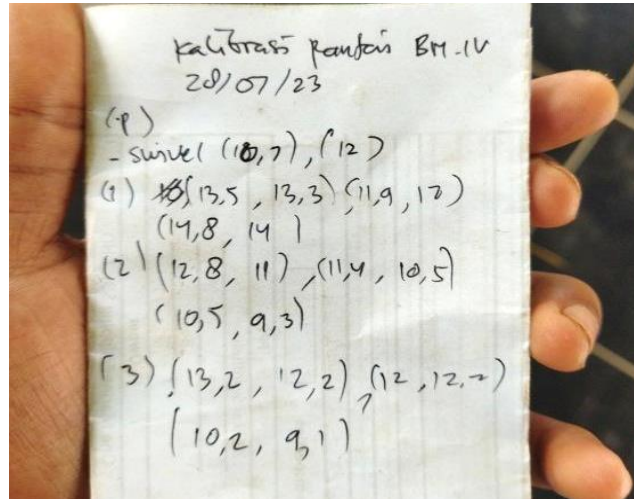 Kalibrasi Rantai BM-IV
28/07/23
(P)
- swivel (10,7), (12)
(1) (13,5 , 13,3), (11,9 , 12)
(14,8 , 14)
(2) (12,8 , 11), (11,4 , 10,5)
(10,5 , 9,3)
(3) (13,2 , 12,2), (12 , 12,2)
(10,2 , 9,1)